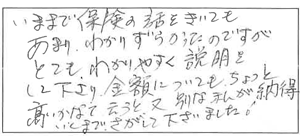 いままで保険の話をきいても
あまり、わかりずらかったのですが
とても、わかりやすく説明を
して下さり、金額についても、ちょっと
高いかなって言うと又、別なまんが納得
いくまで、さがして下さいました。